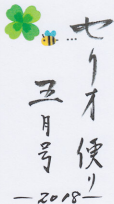 セリオ便り
五月号
－2018－